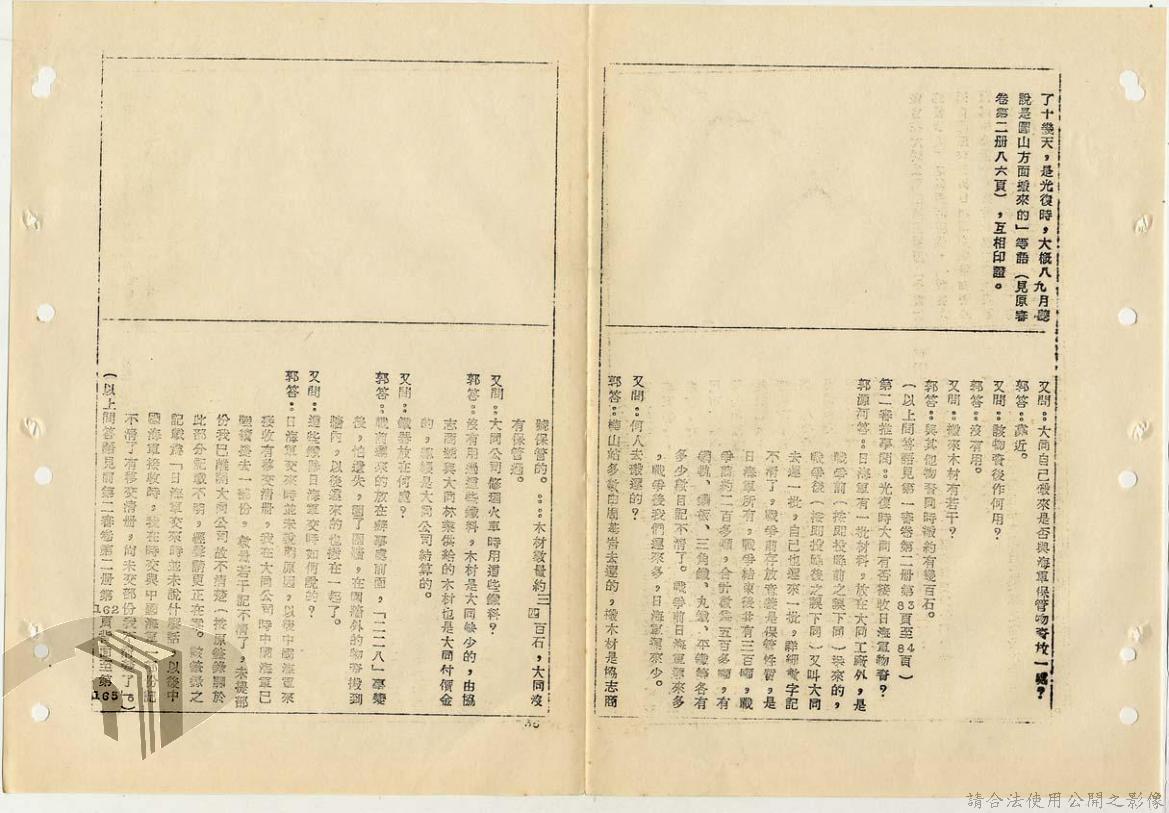 了十幾天，是光復時，大概八九月聽
說是圓山方面搬來的」等語（見原審
卷第二册八六頁），互相印證。
又問：大同自己搬來是否與海軍保管物資放一處？
郭答：靠近。
又問：該物資後作何用？
郭答：沒有用。
又問：搬來木材有若干？
郭答：與其他物資同時搬約有幾百石。
（以上問答語見第一審卷第二册第83頁至84頁）
第二審推事問：光復時大同有否接收日海軍物資？
郭源河答：日海軍有一批材料，放在大同工廠外，是
戰爭前（按即投降前之誤下同）運來的，
戰爭後（按即投降後之誤下同）又叫大同
去運一批，自己也運來一批，詳細數字記
不清了，戰爭前存放着義是保管性質，是
日海軍所有，戰爭結束後共有三百噸，戰
爭前約二百多噸，合計數爲五百多噸，有
鋼軌、鐵板、三角鐵、丸鐵、平鐵等各有
多少數目記不清了。戰爭前日海軍運來多
，戰爭後我們運來多，日海軍運來少。
又問：何人去搬運的？
郭答：樺山站多數由周甚岩去運的，搬木材是協志商
號保管的。……木材數量約三四百石，大同沒
有保管過。
又問：大同公司修理火車時用這些鐵料？
郭答：沒有用過這些鐵料，木材是大同缺少的，由協
志商號與大同林業供給的木材也是大同付價金
的，鐵經是大同公司結算的。
又問：鐵器放在何處？
郭答：戰前運來的放在辦事處前面，「二二八」事變
後，怕遺失，圍了圍牆，在圍牆外的物資搬到
牆內，以後運來的也搬在一起了。
又問：這些鐵條日海軍交時如何說的？
郭答：日海軍交來時並未說明原因，以後中國海軍來
接收有移交清册，我在大同公司時中國海軍已
陸續提去一部份，數量若干記不清了，未提部
份我已離開大同公司故不清楚（按原筆錄關於
此部分記載不明，經聲請更正在案。該筆錄之
記載爲「日海軍交來時並未說什麼話，以後中
國海軍接收時，我在時交與中國海軍一部份記
不清了有移交清册，尚未交部份我不清楚了。）
（以上問答語見前第二審卷第二册第162頁背面至第165